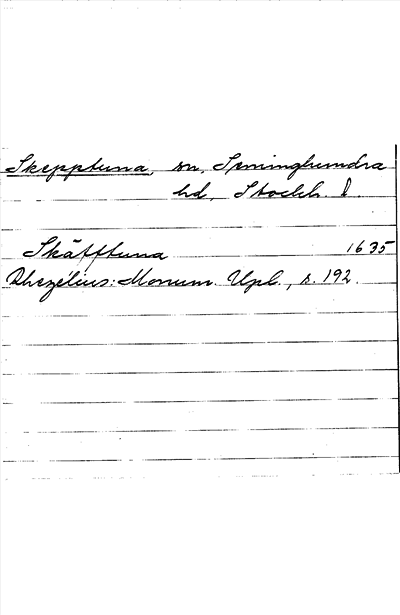 Skepptuna, sn, Seminghundra
hd, Stockh. l.
Skäfftuna 1635
Rhezelius: Monum. Upl., s. 192.